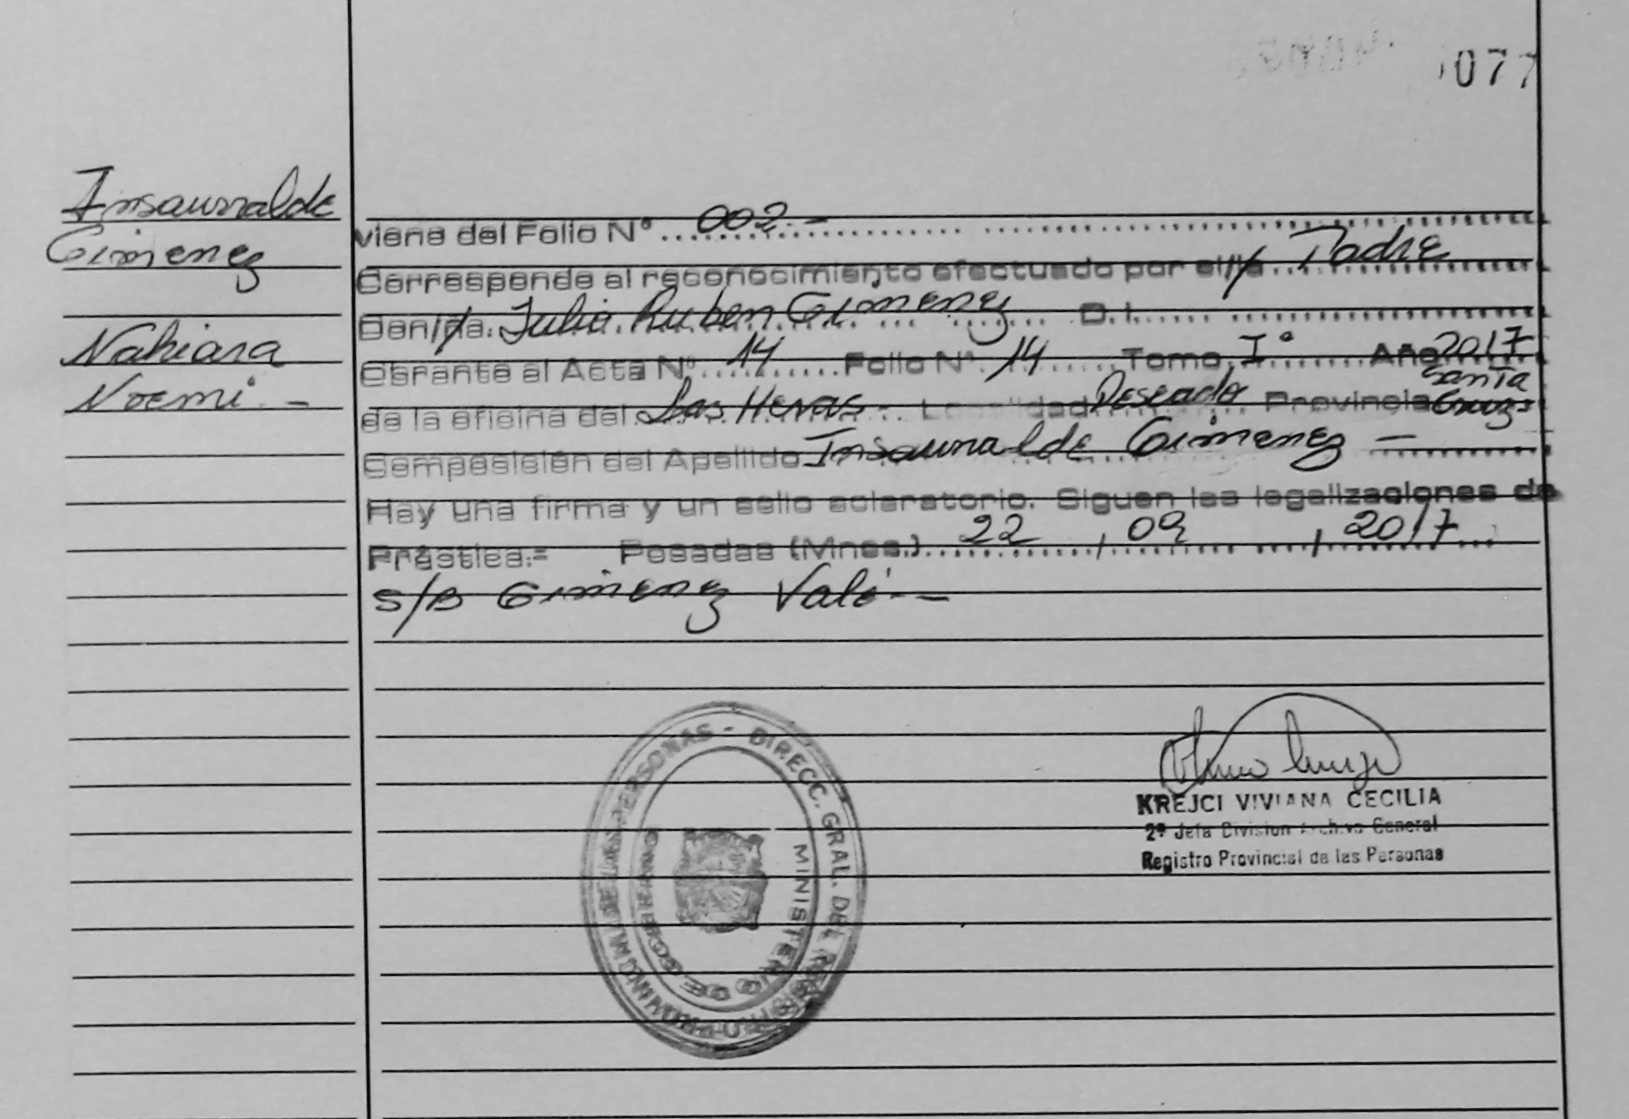 077
Insaurralde
Gimenez
Nahiara
Noemi.-
viene del Folio Nº 002.-
Corresponde al reconocimiento efectuado por el/la Padre
Don/ña. Julio Ruben Gimenez D.I.
Obrante al Acta Nº 14 Folio Nº 14 Tomo Iº Año 2017
de la oficina del Las Heras - Localidad Deseado Provincia Santa Cruz
Composición del Apellido Insaurralde Gimenez —
Hay una firma y un sello aclaratorio. Siguen las legalizaciones de
Práctica.= Posadas (Mnes.) 22 / 09 / 2017
s/B Gimenez Vale.—
KREJCI VIVIANA CECILIA
2º Jefa Division Archivo General
Registro Provincial de las Personas
DIRECC. GRAL. DEL REGISTRO PROVINCIAL DE LAS PERSONAS -
MINISTERIO DE GOBIERNO